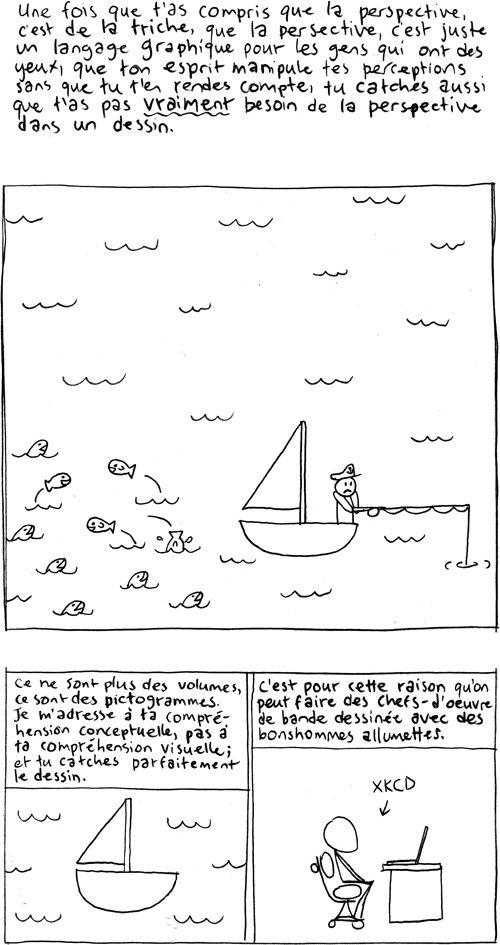 Une fois que t'as compris que la perspective,
c'est de la triche, que la persective, c'est juste
un langage graphique pour les gens qui ont des
yeux, que ton esprit manipule tes perceptions
sans que tu t'en rendes compte, tu catches aussi
que t'as pas vraiment besoin de la perspective
dans un dessin.
Ce ne sont plus des volumes,
ce sont des pictogrammes.
Je m'adresse à ta compré-
hension conceptuelle, pas à
ta compréhension visuelle;
et tu catches parfaitement
le dessin.
C'est pour cette raison qu'on
peut faire des chefs-d'oeuvre
de bande dessinée avec des
bonshommes allumettes.
XKCD